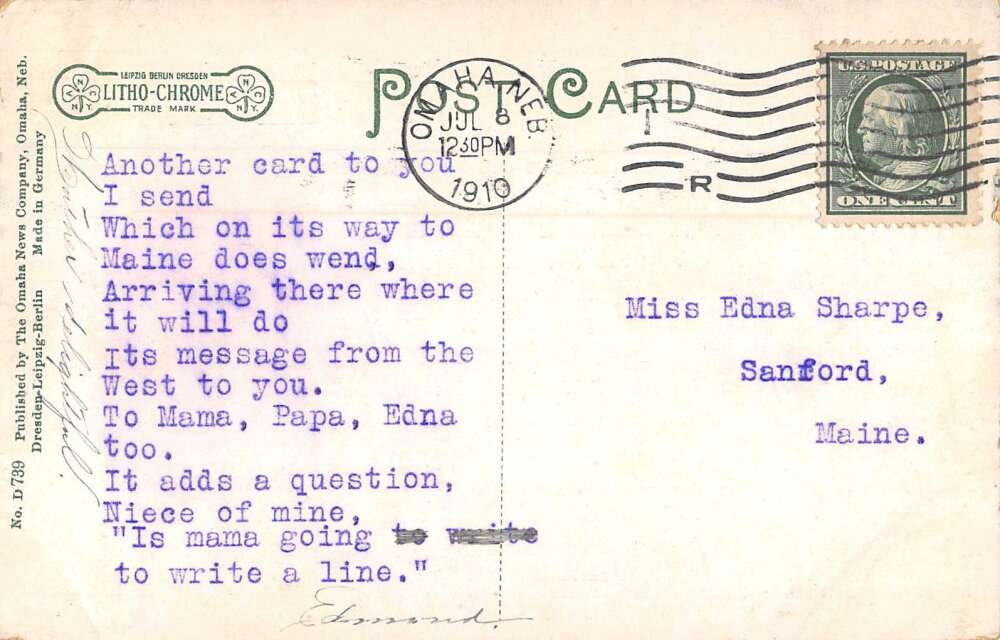 POST CARD
LEIPZIG BERLIN DRESDEN
LITHO-CHROME
TRADE MARK
N
N.Y.
A
C
N
N.Y.
A
C
OMAHA, NEB
JUL 8
1230PM
1910
1
R
U.S. POSTAGE
ONE CENT
No. D 739 Published by The Omaha News Company, Omaha, Neb.
Dresden-Leipzig-Berlin Made in Germany
Weather delightful.
Another card to you
I send
Which on its way to
Maine does wend,
Arriving there where
it will do
Its message from the
West to you.
To Mama, Papa, Edna
too.
It adds a question,
Niece of mine,
"Is mama going to write
to write a line."
Edmond.
Miss Edna Sharpe,
Sanford,
Maine.